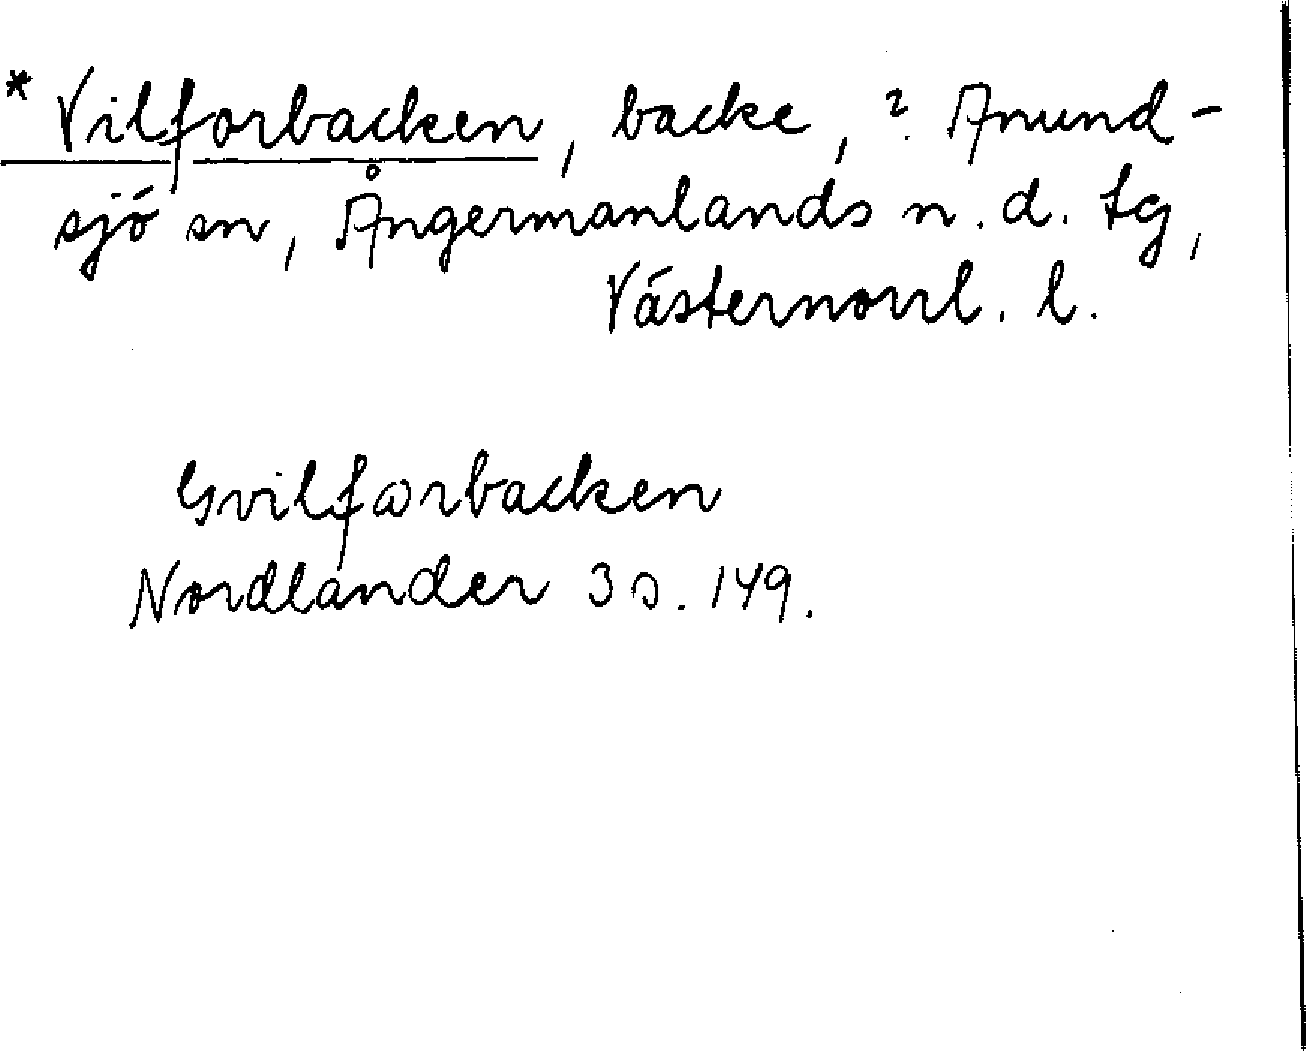 * Vilforbacken, backe, ? Anund-
sjö sn, Ångermanlands n. d. tg,
Västernorrl. l.
Gvilforbacken
Nordlander 3 s. 149.